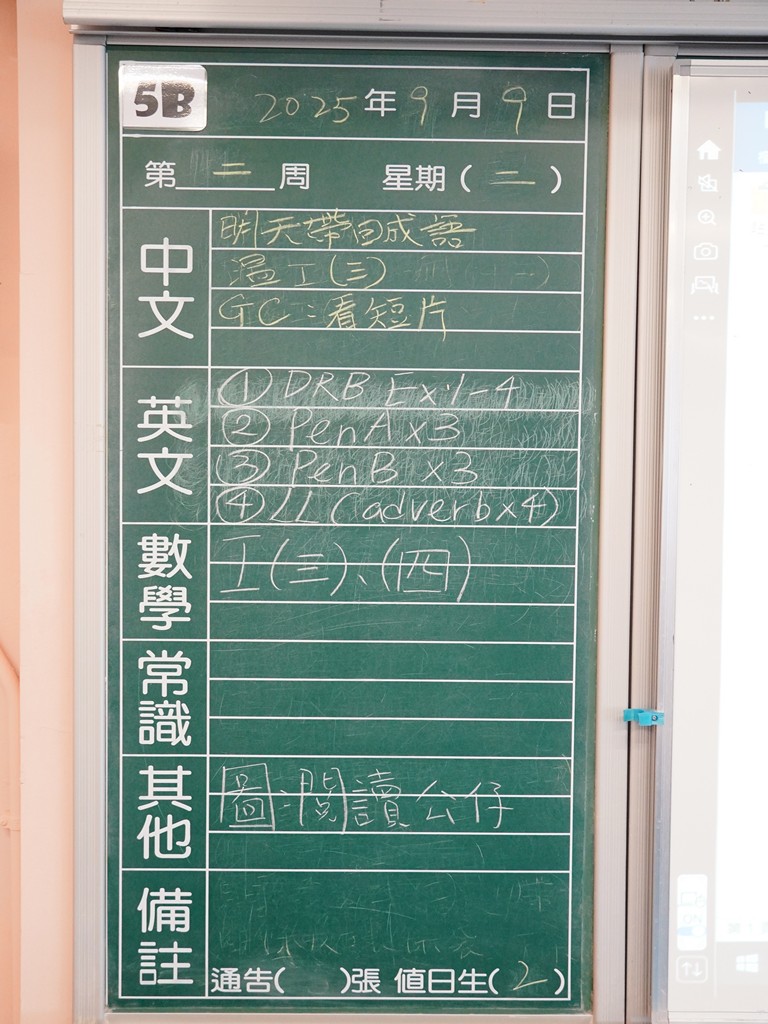 5B
2025年9月9日
第二周 星期(二)
中文
明天帶回成語
溫工(三)
GC:看短片
英文
① DRB Ex1-4
② PenA x3
③ PenB x3
④ LL (adverb x4)
數學
工(三)、(四)
常識
其他
圖:閱讀公仔
備註
通告( )張 值日生(2)